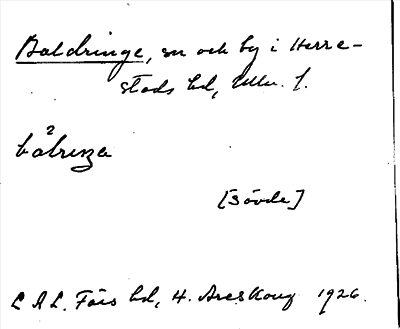 Baldringe, sn och by i Herre-
stads hd, Mlm. l.
2
bålrenza
[Sövde]
L A L. Färs hd, H. Areskoug 1926.